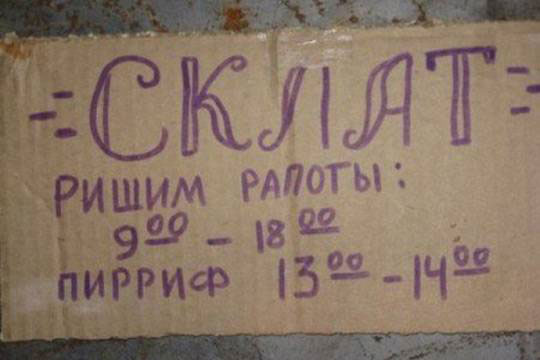 = СКЛАТ =
РИШИМ РАПОТЫ:
9⁰⁰ - 18⁰⁰
ПИРРИФ 13⁰⁰ - 14⁰⁰